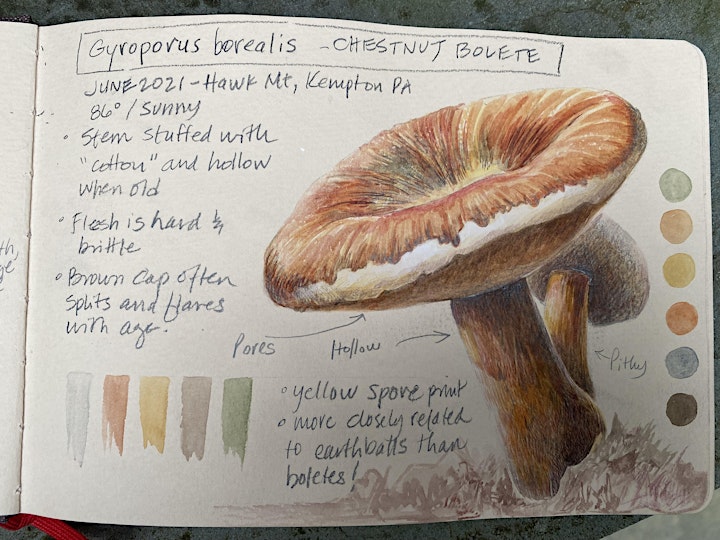 Gyroporus borealis - CHESTNUT BOLETE
JUNE 2021 - Hawk Mt, Kempton PA
86° / Sunny
• Stem stuffed with
"cotton" and hollow
when old
• Flesh is hard &
brittle
• Brown cap often
splits and flares
with age.
Pores
Hollow
Pithy
• yellow spore print
• more closely related
to earthballs than
boletes!